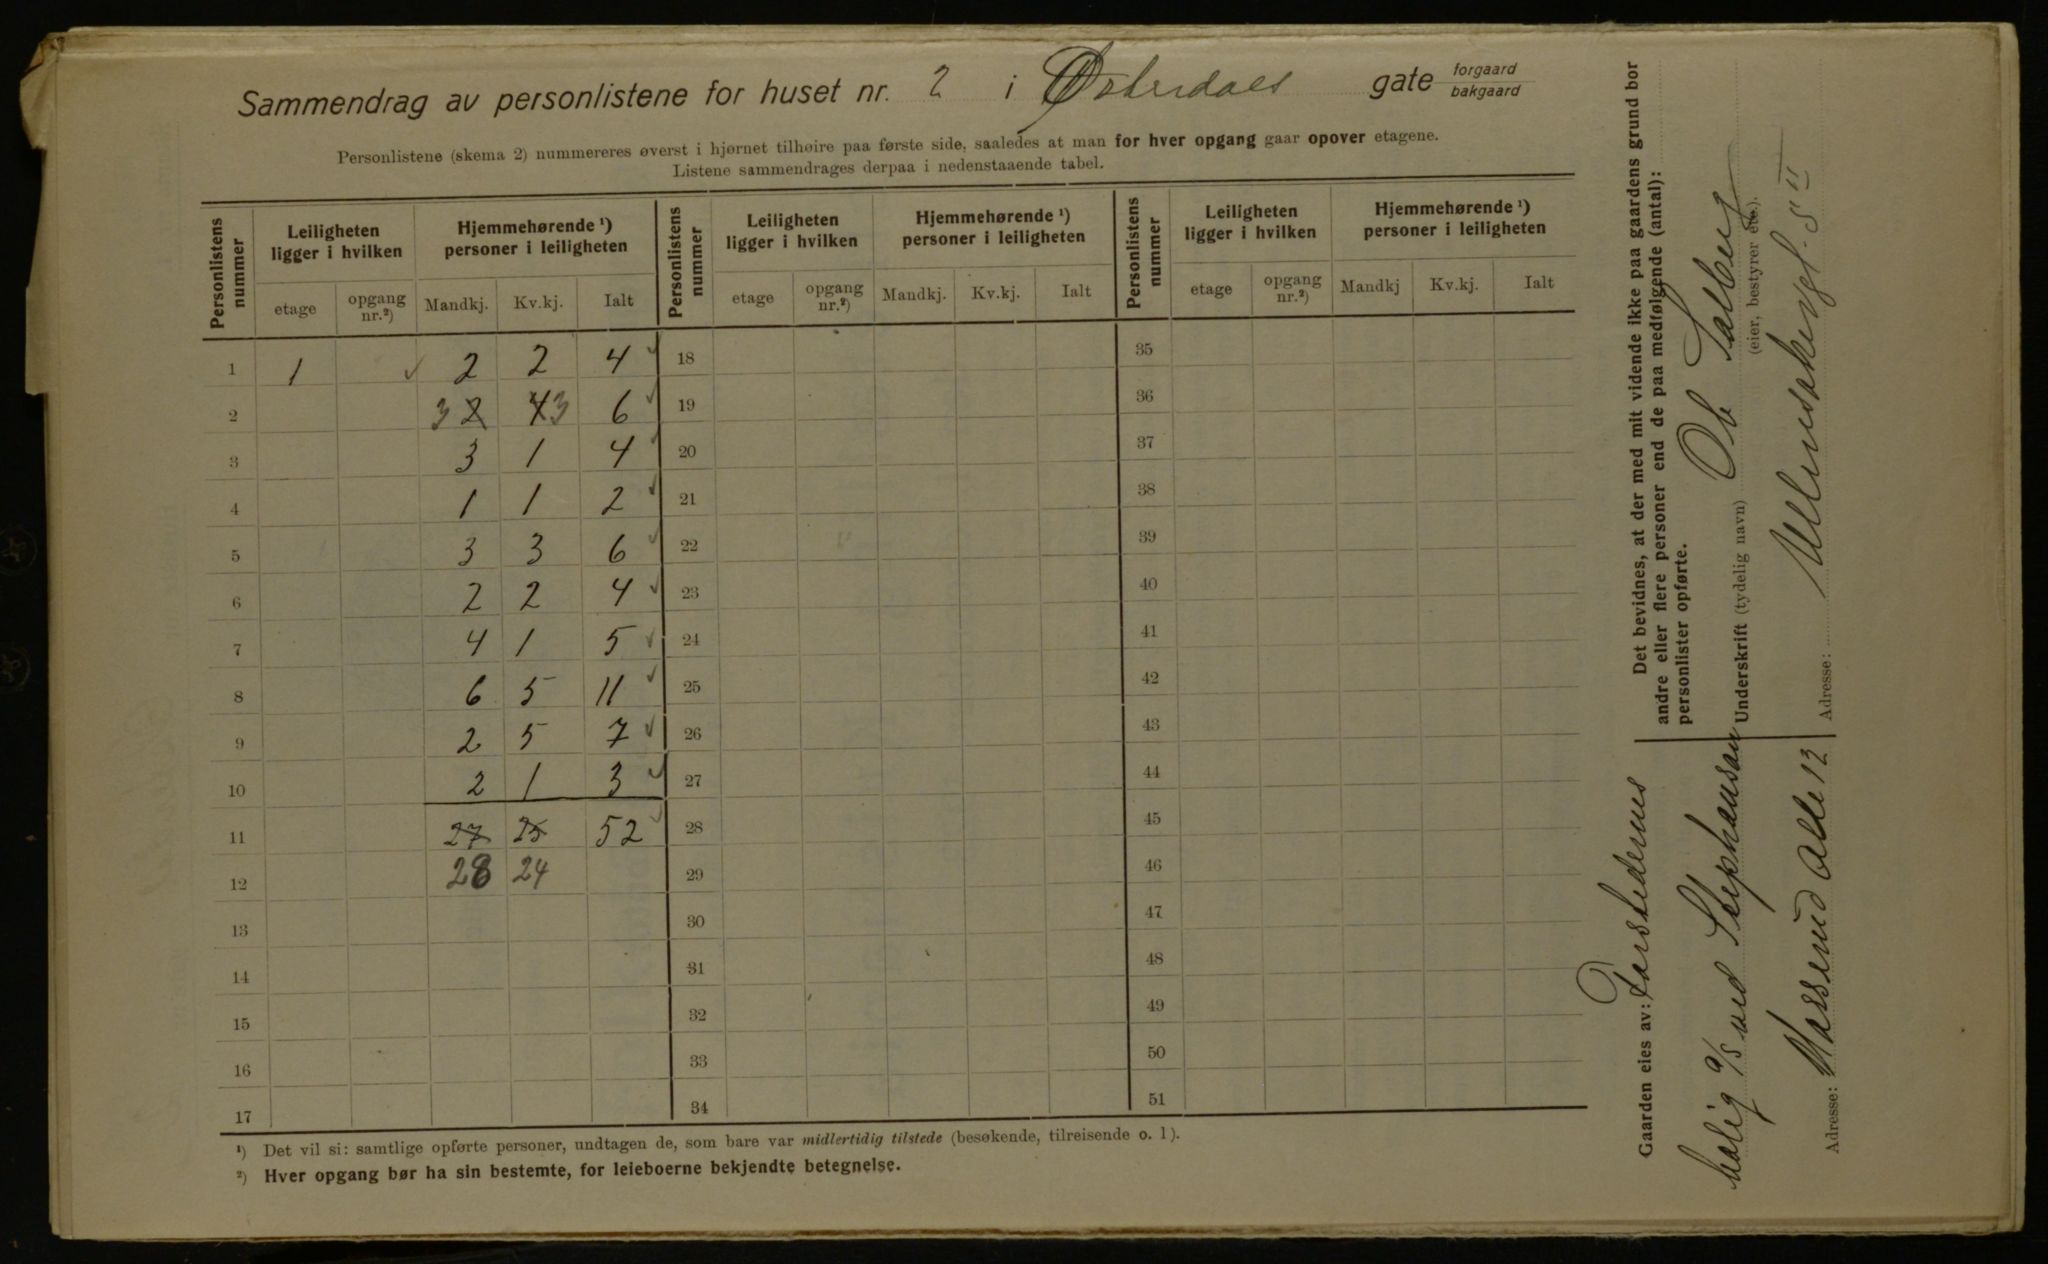 Sammendrag av personlistene for huset nr. 2 i Østerdals gate forgaard bakgaard
Personlistene (skema 2) nummereres øverst i hjørnet tilhøire paa første side, saaledes at man for hver opgang gaar opover etagene.
Listene sammendrages derpaa i nedenstaaende tabel.
Personlistens nummer Leiligheten ligger i hvilken Hjemmehørende ¹) personer i leiligheten Personlistens nummer Leiligheten ligger i hvilken Hjemmehørende ¹) personer i leiligheten Personlistens nummer Leiligheten ligger i hvilken Hjemmehørende ¹) personer i leiligheten
etage opgang nr.²) Mandkj. Kv.kj. Ialt etage opgang nr.²) Mandkj. Kv.kj. Ialt etage opgang nr.²) Mandkj Kv.kj. Ialt
1 1 ✓ 2 2 4 ✓ 18 35
2 3 2 4 3 6 ✓ 19 36
3 3 1 4 ✓ 20 37
4 1 1 2 ✓ 21 38
5 3 3 6 ✓ 22 39
6 2 2 4 ✓ 23 40
7 4 1 5 ✓ 24 41
8 6 5 11 ✓ 25 42
9 2 5 7 ✓ 26 43
10 2 1 3 ✓ 27 44
11 27 25 52 ✓ 28 45
12 28 24 29 46
13 30 47
14 31 48
15 32 49
16 33 50
17 34 51
¹) Det vil si: samtlige opførte personer, undtagen de, som bare var midlertidig tilstede (besøkende, tilreisende o. l).
²) Hver opgang bør ha sin bestemte, for leieboerne bekjendte betegnelse.
Det bevidnes, at der med mit vidende ikke paa gaardens grund bor
andre eller flere personer end de paa medfølgende (antal):
personlister opførte.
Underskrift (tydelig navn) Ob Salberg
(eier, bestyrer etc.).
Adresse: Ullensakergt. 5 II
Gaarden eies av: Forstedernes
bolig a/s ved Stephansan
Adresse: Mosserud Alle 12